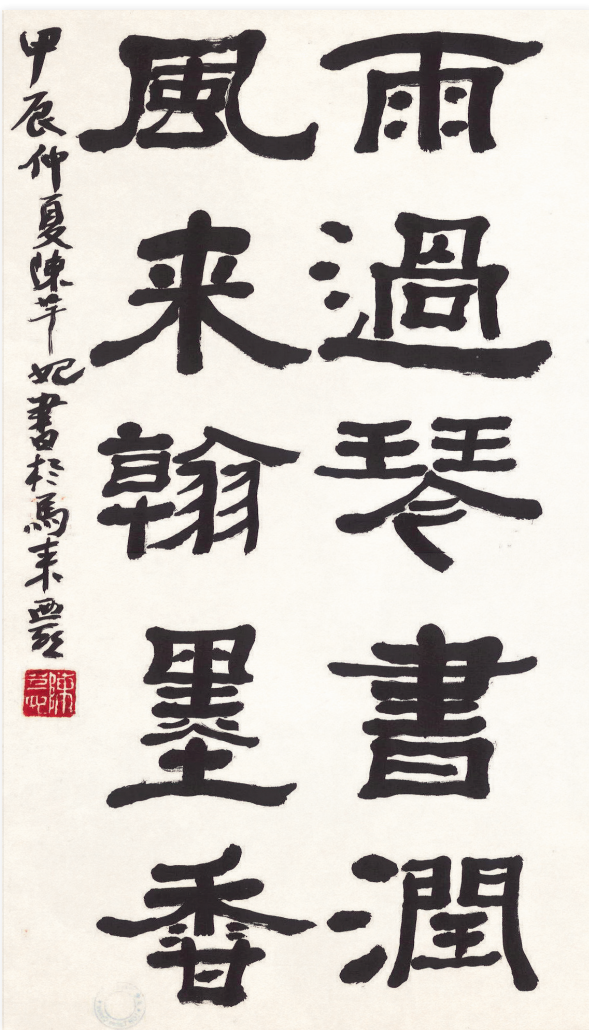 雨過琴書潤
風来翰墨香
甲辰仲夏陳芊妃書於馬来西亞